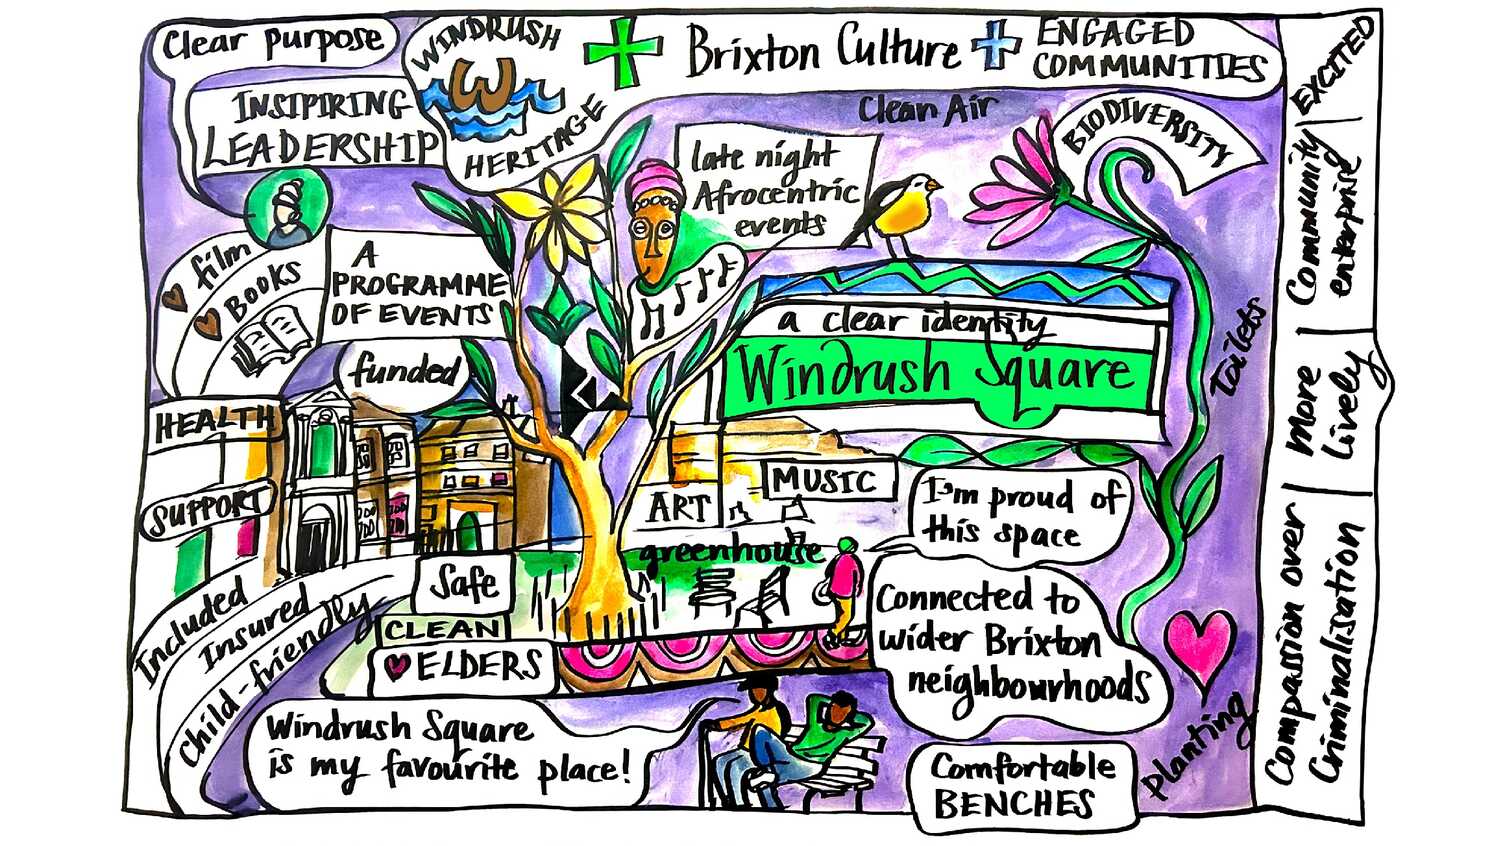 Clear purpose
INSIPIRING
LEADERSHIP
WINDRUSH
W
HERITAGE
+ Brixton Culture +
ENGAGED
COMMUNITIES
Clean Air
BIODIVERSITY
late night
Afrocentric
events
film
BOOKS
A
PROGRAMME
OF EVENTS
funded
a clear identity
Windrush Square
Toilets
HEALTH
SUPPORT
ART
MUSIC
greenhouse
I'm proud of
this space
Safe
CLEAN
ELDERS
Included
Insured
Child-friendly
Connected to
wider Brixton
neighbourhoods
Windrush Square
is my favourite place!
Comfortable
BENCHES
Planting
EXCITED
Community
enterprise
More
Lively
Compassion over
Criminalisation